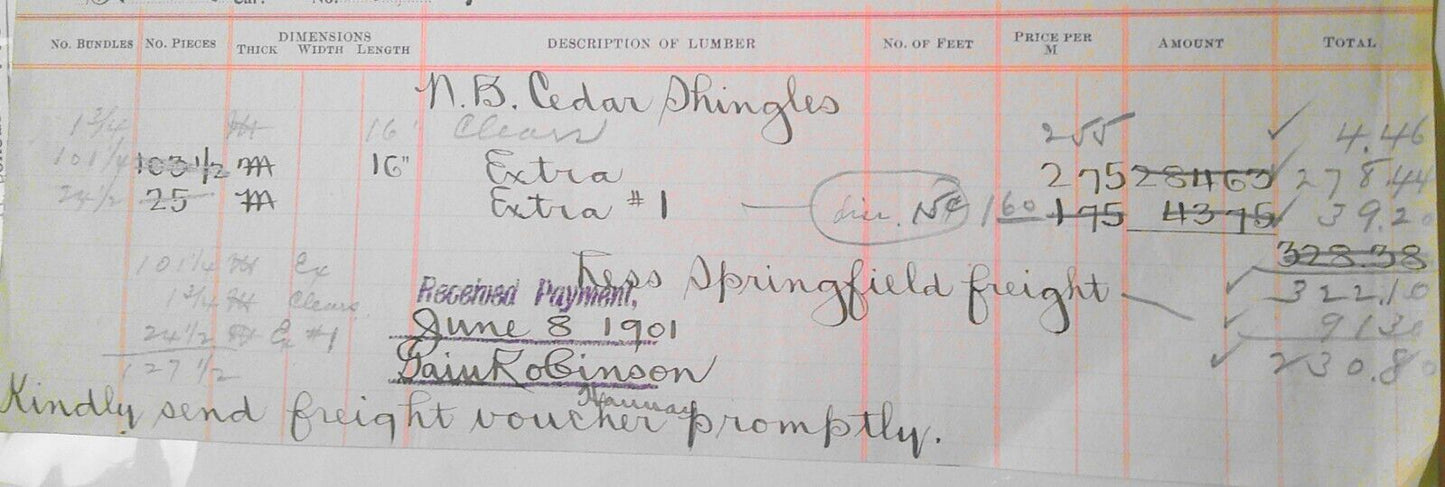 No. Bundles No. Pieces Dimensions Thick Width Length Description of Lumber No. of Feet Price per M Amount Total
N.B. Cedar Shingles
1 3/4 M 16" Clears 255 ✓ 4.46
101 1/4 103 1/2 M 16" Extra 275 28463 ✓ 278.44
24 1/2 25 M Extra #1 160 175 4375 ✓ 39.20
328.38
101 1/4 M Ex Less Springfield freight ✓ 322.10
1 3/4 M Clears Received Payment, ✓ 9130
24 1/2 M Ex #1 June 8 1901 ✓ 230.80
127 1/2 Robinson
Kindly send freight voucher promptly.